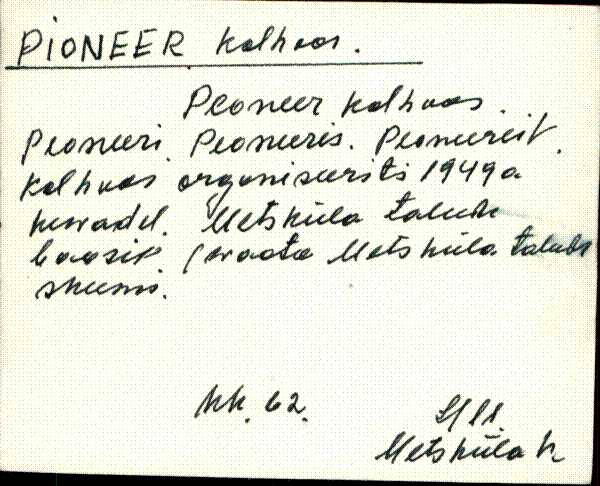 PIONEER kolhoos.
Peoneer kolhoos.
Peoneeri. Peoneeris. Peoneerist.
Kolhoos organiseeriti 1949 a
kevadel. Metsküla talude
baasil. (vaata Metsküla talude
skeemi.
KK. 62.
Metsküla k